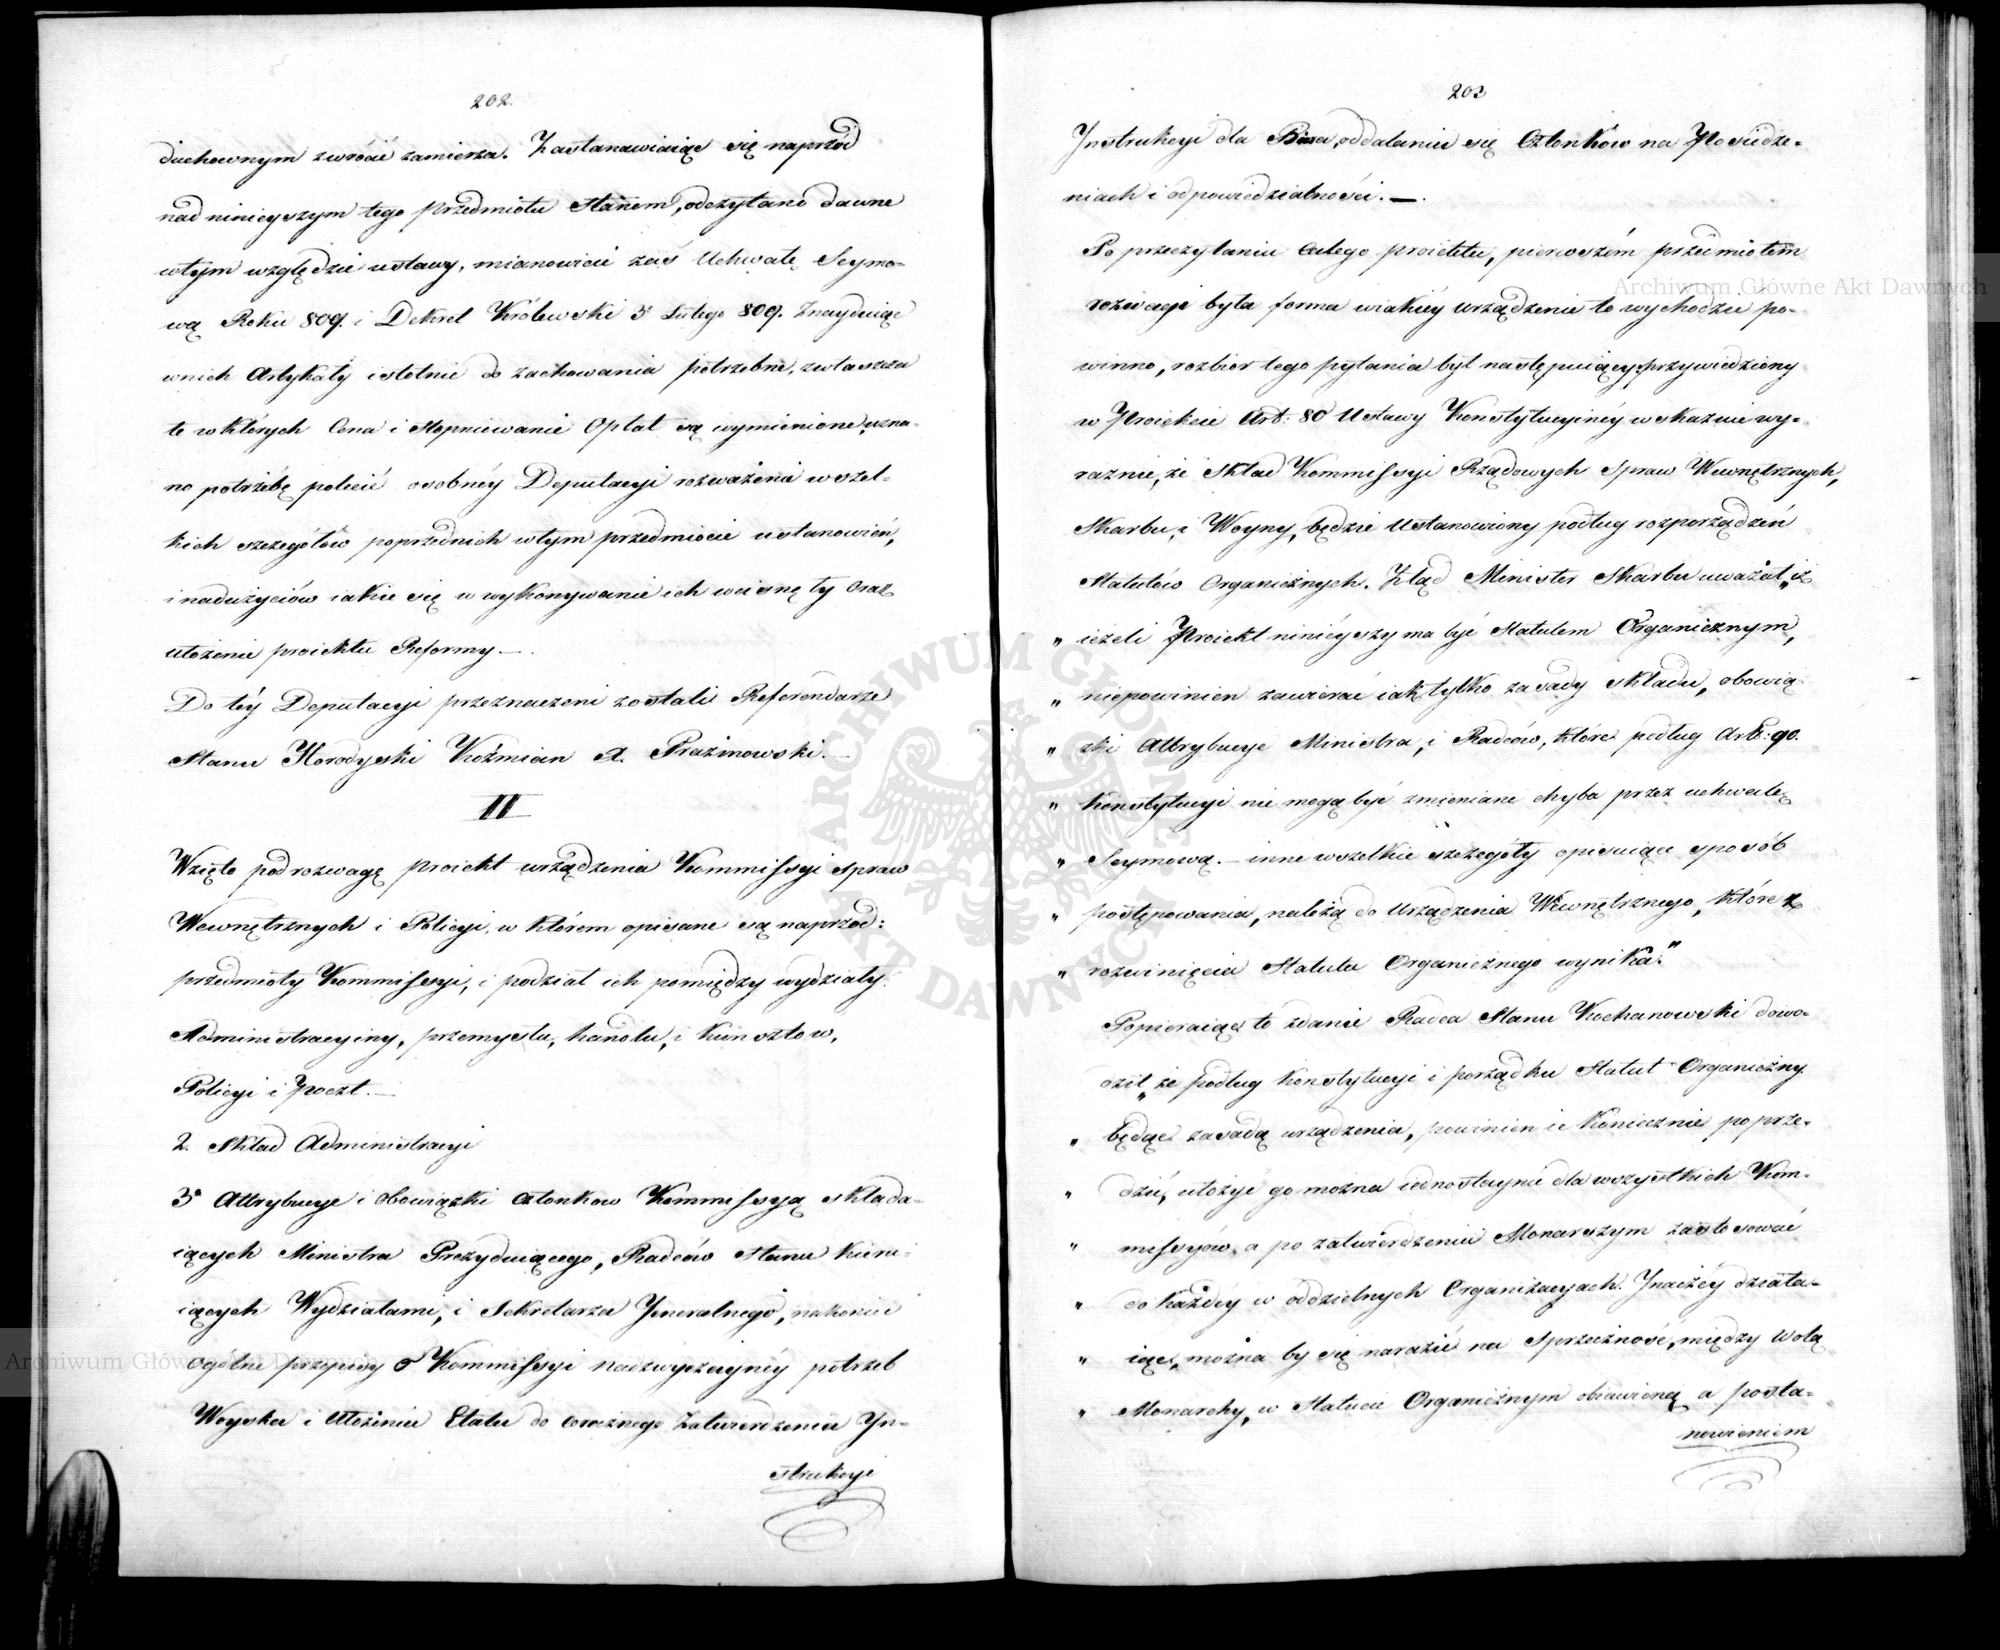 202.
duchownym zwrócić zamierza. Zastanawiaiąc się naprzód
nad ninieyszym tego przedmiotu stanem, odczytano dawne
wtym względzie ustawy, mianowicie zaś Uchwałę Seymo-
wą Roku 809. i Dekret Królewski 3º Lutego 809. Znayduiąc
wnich Artykuły istotnie do zachowania potrzebne, zwłaszcza
te wktórych Cena i stopniowanie Opłat są wymienione, uzna-
no potrzebę polecić osobnéy Deputacyi rozważenie wszel-
kich szczegółów poprzednich wtym przedmiocie ustanowień,
i nadużyciów iakie się w wykonywanie ich wcisnęły oraz
ułożenie proiektu Reformy. —
Do téy Deputacyi przeznaczeni zostali Referendarze
Stanu Horodyski Koźmian X. Prażmowski. —
II
Wzięto pod rozwagę proiekt urządzenia Kommissyi spraw
Wewnętrznych i Policyi, w którém opisane są naprzod:
przedmioty Kommissyi, i podział ich pomiędzy wydziały.
Administracyiny, przemysłu, handlu, i kunsztow,
Policyi i poczt. —
2. Skład Administracyi
3º Attrybucye i obowiązki członkow Kommissyą składa-
iących Ministra Prezyduiącego, Radców stanu kieru-
iących Wydziałami, i Sekretarza Jeneralnego, nakoniec
ogólne przepisy o Kommissyi nadzwyczaynéy potrzeb
Woyska i Ułożeniu Etatu do corocznego zatwierdzenia Jn-
strukcyi
203
Jnstrukcyi dla Biura, oddalaniu się Członków na Posiedze-
niach i odpowiedzialności. —
Po przeczytaniu całego proiektu, pierwszém przedmiotem
rozwagi była forma wiakiéy urządzenie to wychodzić po-
winno, rozbior tego pytania był następuiący: przywiedziony
w Proiekcie Art: 80 Ustawy Konstytucyinéy wskazuie wy-
raznie, że skład Kommissyi Rządowych Spraw Wewnętrznych,
Skarbu, i Woyny, będzie Ustanowiony podług rozporządzeń
Statutów Organicznych. Ztąd Minister Skarbu uważał, „iż
„ ieżeli Proiekt ninieyszy ma być Statutem Organicznym,
„ niepowinien zawierać iak tylko zasady składu, obowią
„ zki Attrybucye Ministra, i Radców, które podług Art: 90.
„ Konstytucyi nie mogą być zmieniane chyba przez uchwałę
„ Seymową. — inne wszelkie szczegóły opisuiące sposób
„ postępowania, należą do Urządzenia Wewnętrznego, które z
„ rozwinięcia Statutu Organicznego wynika."
Popieraiąc to zdanie Radca Stanu Kochanowski dowo-
dził, „że podług Konstytucyi i porządku Statut Organiczny
„ będąc zasadą urządzenia, powinien ie koniecznie poprze-
„ dzić, ułożyć go można iednostaynie dla wszystkich Kom-
„ missyów, a po zatwierdzeniu Monarszym zastosować
„ do każdéy w oddzielnych Organizacyach. Jnaczéy działa-
„ iąc, można by się narazić na sprzeczność, między wolą
„ Monarchy, w Statucie Organicznym obiawioną a posta-
nowieniem
Archiwum Główne Akt Dawnych
Archiwum Główne Akt Dawnych
ARCHIWUM GŁÓWNE AKT DAWNYCH